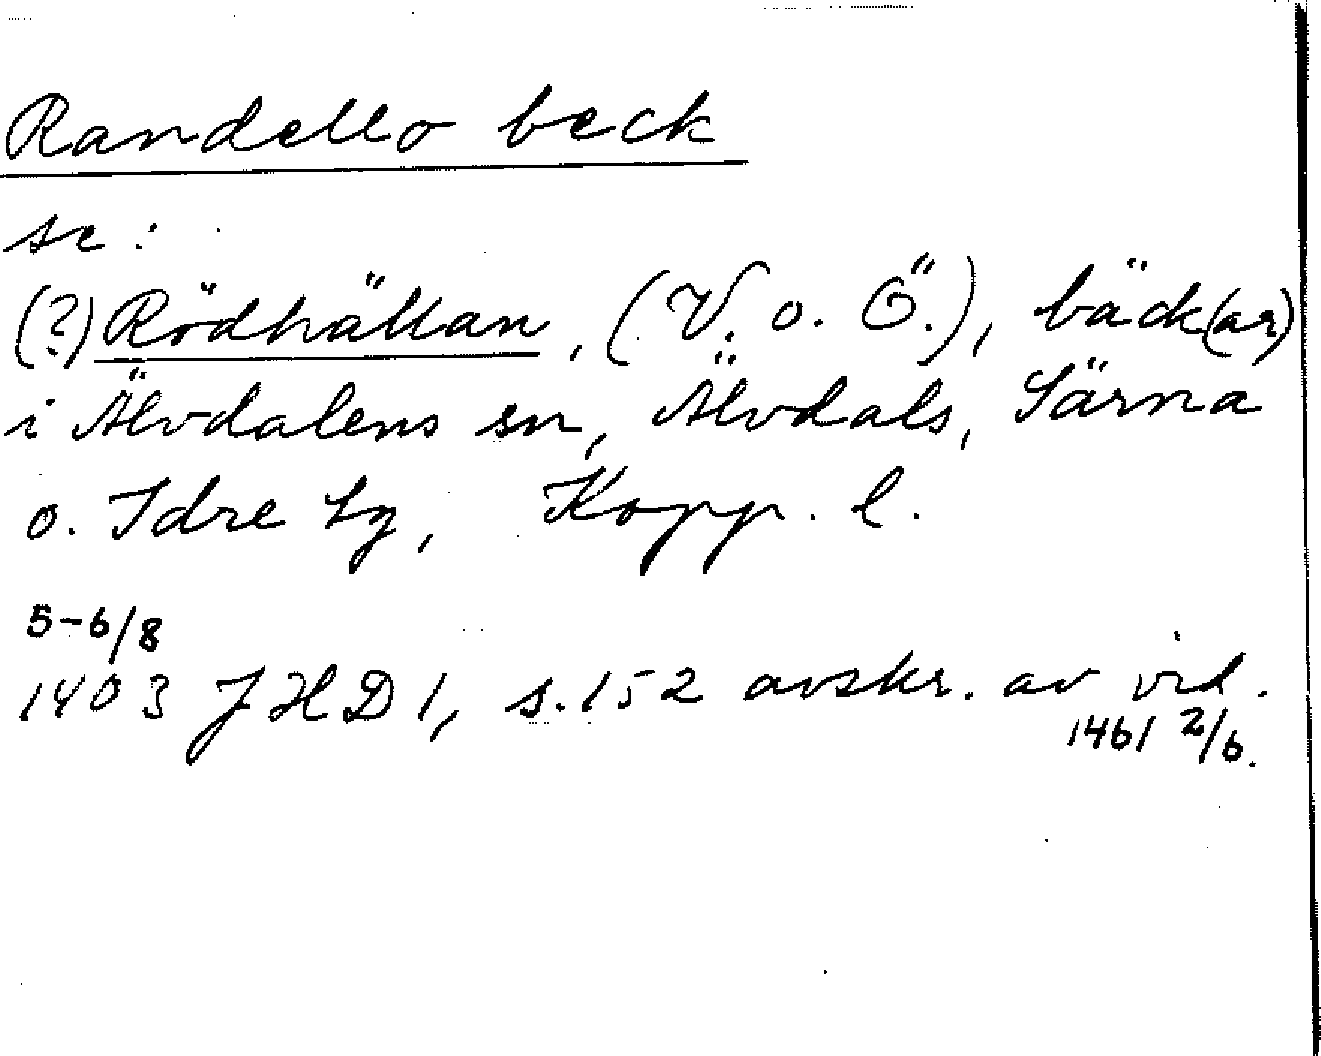 Randello beck
se:
(?) Rödhällan, (V. o. Ö.), bäck(ar)
i Älvdalens sn, Älvdals, Särna
o. Idre tg, Kopp. l.
5-6/8
1403 JHD 1, s. 152 avskr. av vid.
1461 2/6.